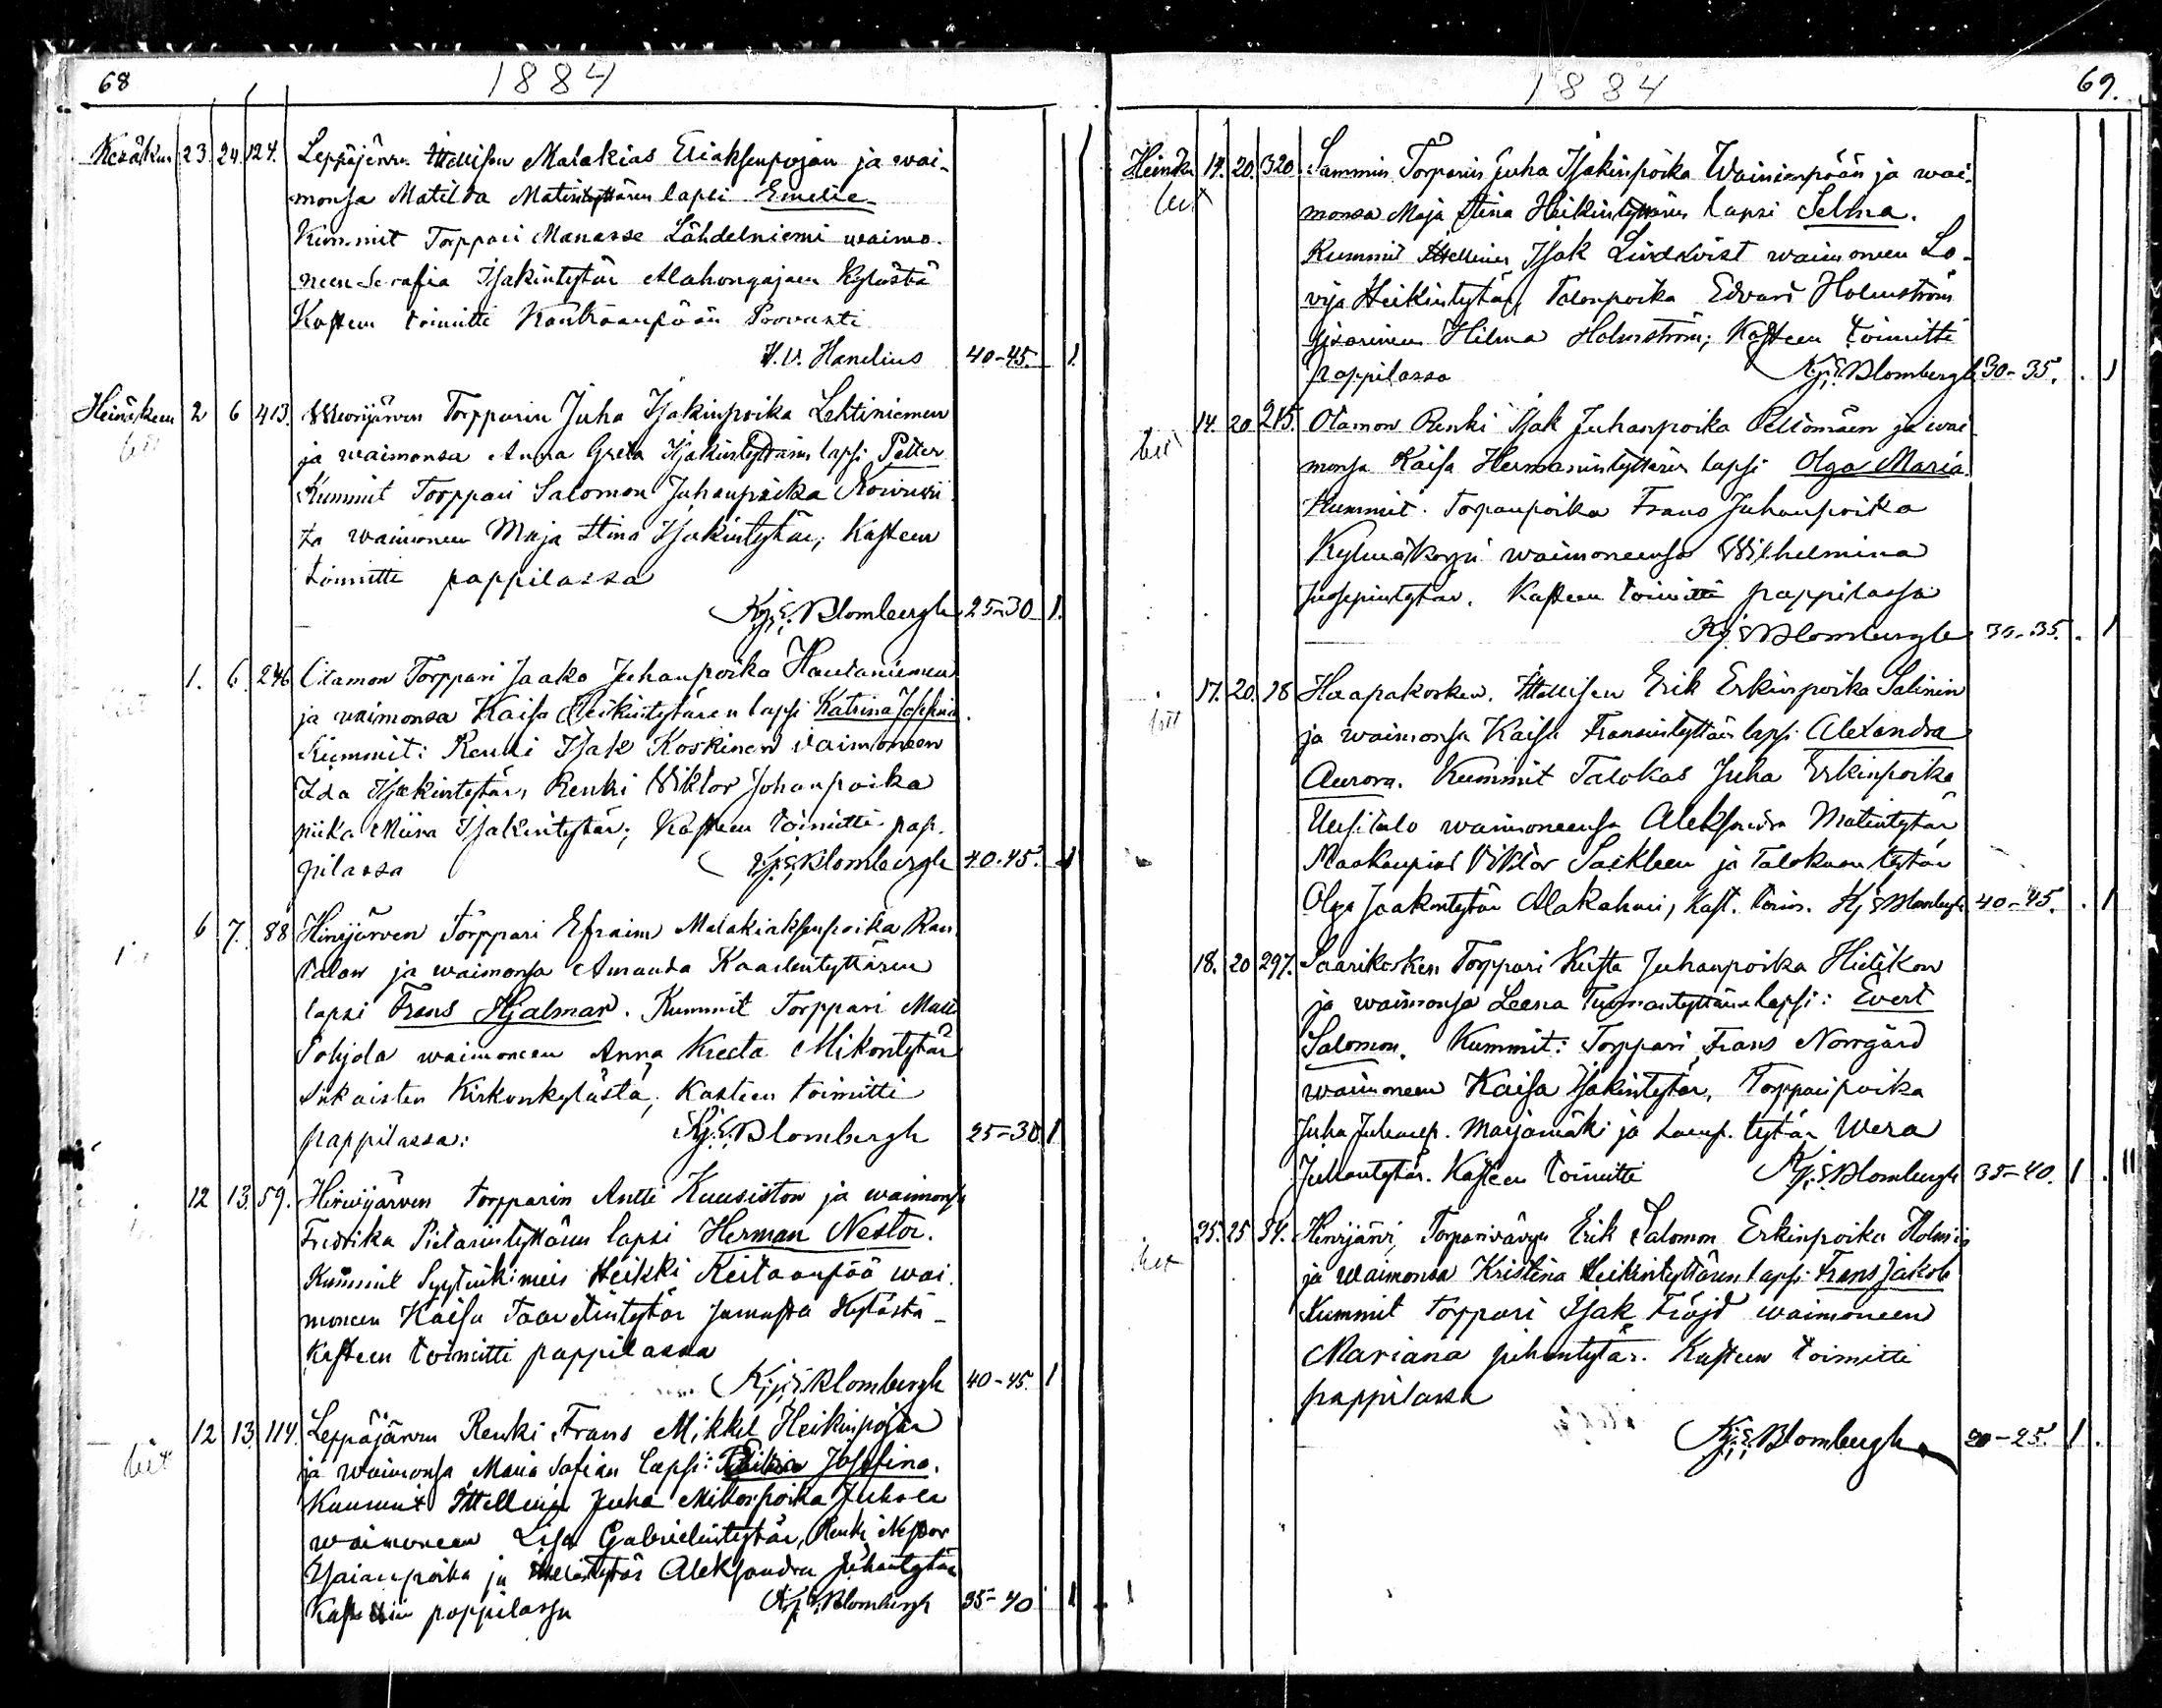 68
1884
Kesäkuu 23. 24. 124. Leppäjärven Ittellisen Malakias Eliaksenpojan ja wai-
monsa Matilda Matintyttären lapsi Emelie
Kummit Torppari Manasse Lähdelniemi waimo-
neen Serafia Isakintytär Alahongajoen Kylästä
Kasteen toimitti Kankaanpään Provasti
K. V. Hanelius 40-45. 1.
Heinäkuu 2 6 413. Torpparin Juha Isakinpoika Lehtiniemen
ja waimonsa Anna Greta Isakintyttären lapsi Petter
Kummit Torppari Salomon Juhanpoika
ta waimoneen Maja Stina Isakintytär; Kasteen
toimitti pappilassa
Kj. E. Blombergh 25-30 1.
1. 6. 246 Otamon Torppari Jaako Juhanpoika Hautaniemen
ja waimonsa Kaisa Heikintytären lapsi Katrina Josefina
Kummit: Renki Isak Koskinen vaimoneen
Ida Isakintytär, Renki Viktor Johanpoika
piika Miina Isakintytär; Kasteen toimitti pap-
pilassa Kj. E. Blombergh 40-45. 1
6 7. 88 Hirvijärven Torppari Efraim Malakiaksenpoika Ran
talan ja waimonsa Amanda Kaarlentyttären
lapsi Frans Hjalmar. Kummit Torppari Matti
Pohjola waimoneen Anna Kreeta Mikontytär
Siikaisten Kirkonkylästä; Kasteen toimitti
pappilassa: Kj. E. Blombergh 25-30. 1
12 13. 59. Hirwijärven torpparin Antti Kuusiston ja waimonsa
Fredrika Pietarintyttären lapsi Herman Nestor.
Kummit Syytinkimies Heikki Keitaanpää wai
moneen Kaisa Taavetintytär Kylästä
Kasteen toimitti pappilassa
Kj. E. Blombergh 40-45. 1
12 13. 114. Leppäjärven Renki Frans Mikkel Heikinpojan
ja waimonsa Maria Sofian lapsi: Josefina.
Kummit Ittellinen Juha Mikonpoika Juhola
waimoneen Lisa Gabrielintytär, Renki Nestor
Isaianpoika ja Aleksandra Juhantytär
Kast. pappilassa Kj. E. Blombergh 35-40 1
1884
69.
Heinäk. 14. 20. 320. Sammin Torparin Juha Isakinpoika Wainionpään ja wai-
monsa Maja Stina Heikintyttären lapsi Selma.
Kummit Ittellinen Isak Lindqvist waimoneen Lo-
visa Heikintytär, Talonpoika Edvard Holmström
sisarineen Hilma Holmström; Kasteen toimitti
pappilassa Kj. E. Blombergh 30-35. 1
14. 20 215. Otamon Renki Isak Juhanpoika Peltomäen ja wai
monsa Kaisa Hermanintyttären lapsi Olga Maria.
Kummit. Torpanpoika Frans Juhanpoika
Kylmäkorpi waimoneensa Wilhelmina
Kasteen toimitti pappilassa
Kj. E. Blombergh 30-35. 1
17. 20. 18 Haapakosken. Ittellisen Erik Erkinpoika Salinin
ja waimonsa Kaisa Fransintyttären lapsi Alexandra
Aurora. Kummit Talokas Juha Erkinpoika
Uusitalo waimoneensa Aleksandra Matintytär
Maakaupias Viktor ja Talokaan tytär
Olga Jaakontytär Alakahui, Kast. toim. Kj. E. Blombergh 40-45. 1
18. 20 297. Saarikosken Torppari Kusta Juhanpoika Hietikon
ja waimonsa Leena Tuomantyttären lapsi: Evert
Salomon. Kummit: Torppari Frans Norrgård
waimoneen Kaisa Isakintytär, Torpparipoika
Juha Juhanp. Marjamäki ja tytär Wera
Juhantytär. Kasteen toimitti Kj. E. Blombergh 35-40. 1
25. 25 54. Hirvijärvi, Torparivävyn Erik Salomon Erkinpoika Holmin
ja waimonsa Kristina Heikintyttären lapsi: Frans Jakob
Kummit Torppari Isak Fröjd waimoneen
Mariana Juhantytär. Kasteen toimitti
pappilassa
Kj. E. Blombergh 20-25. 1